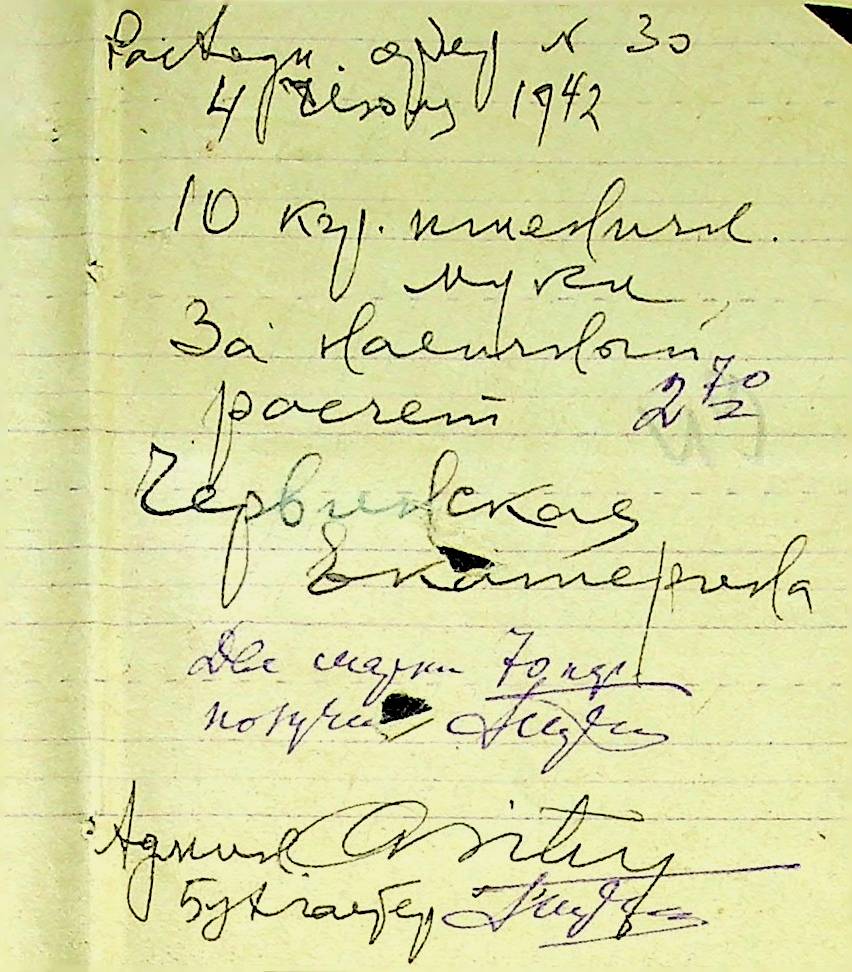 Расходн. ордер № 30
4 1942
10 кгр. пшеничн.
муки
За наличный
расчет 2 70
Червинская
Екатерина
Две марки 70 пф.
получил
Админ
Бухгалтер